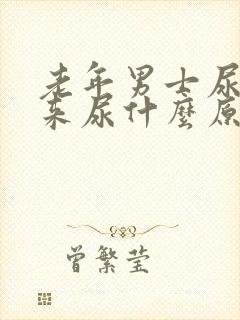 老年男士尿
来尿什麼原
曾繁莹